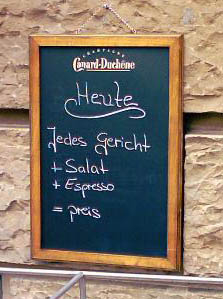 CHAMPAGNE
Canard-Duchêne
Heute
Jedes Gericht
+ Salat
+ Espresso
= preis